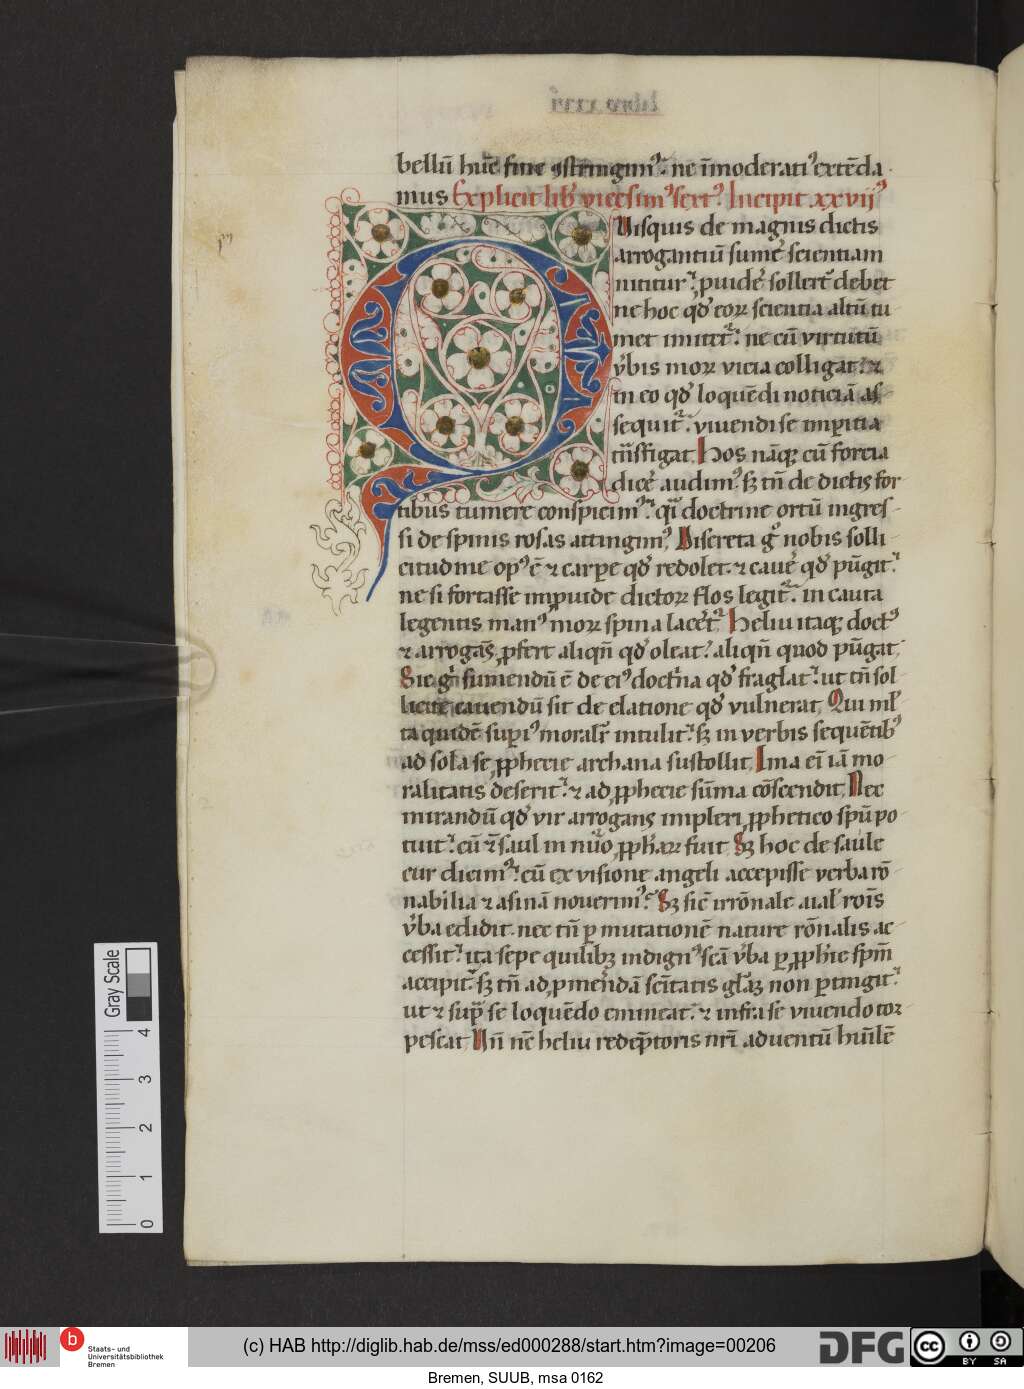 libro xxvi
bellū hūc fine ꝯstringimꝰ. ne īmoderatiꝰ extēda
mus Explicit lib' vicesimꝰsextꝰ. Incipit xxvijꝰ
Uisquis de magnis dictis
arrogantiū sum̄e scientiam
nititur. p̱uidē sollert̄ debet
ne hoc qd̕ eoꝝ scientia altū tu
met imitet̄. ne cū virtutū
v̕bis moꝝ vicia colligat. ⁊
in eo qd̕ loquēdi noticiā as
sequit̄. viuendi se imp̱itia
tn̄sfigat. Hos nāqꝫ cū forcia
dice̕ audimꝰ. sꝫ tn̄ de dictis for
tibus tumere conspicimꝰ. q̄i doctrine ortū ingres-
si de spinis rosas attingimꝰ. Discreta g̊ nobis solli-
citudine opꝰ ē ⁊ carpe qd̕ redolet. ⁊ caue̕ qd̕ pūgit.
ne si fortasse imp̱uide dictoꝝ flos legit̄. in cauta
legentis manꝰ moꝝ spina lacet̄. Heliu itaqꝫ doctꝰ
⁊ arrogās. ꝓfert aliqn̄ qd̕ oleat. aliqn̄ quod pūgat.
Sic g̊ sumendū ē de eiꝰ doct̄na qd̕ fraglat. ut tn̄ sol
licite cauendū sit de elatione qd̕ vulnerat. Qui ml̕
ta quidē sup̱iꝰ moralr̄ intulit. sꝫ in verbis sequētibꝰ
ad sola se ꝓphecie archana sustollit. Ima ei̅ iā mo
ralitatis deserit. ⁊ ad ꝓphecie sūma cōscendit. Nec
mirandū qd̕ vir arrogans impleri ꝓphetico spū po
tuit. cū ⁊ saul in nūo ꝓph̄aꝝ fuit. Sꝫ hoc de saule
cur dicimꝰ. cū ex visione angeli accepisse verba rō
nabilia ⁊ asinā nouerimꝰ. Sꝫ sic̄ irrōnale aial̕ rōis
v̕ba edidit. nec tn̄ p̱ mutationē nature rōnalis ac-
cessit. ita sepe quilibꝫ indignꝰ scā v̕ba p̱ ꝓph̄ie spm̄
accipit. sꝫ tn̄ ad ꝓmendā sc̄itatis gl̄aꝫ non p̱tingit.
ut ⁊ sup̄ se loquēdo emineat. ⁊ infra se viuendo tor
pescat. Un̄ nē heliu redēptoris nr̄i aduentū hūilē
Gray Scale
0 1 2 3 4
b
Staats- und
Universitätsbibliothek
Bremen
(c) HAB http://diglib.hab.de/mss/ed000288/start.htm?image=00206
DFG
cc BY SA
Bremen, SUUB, msa 0162